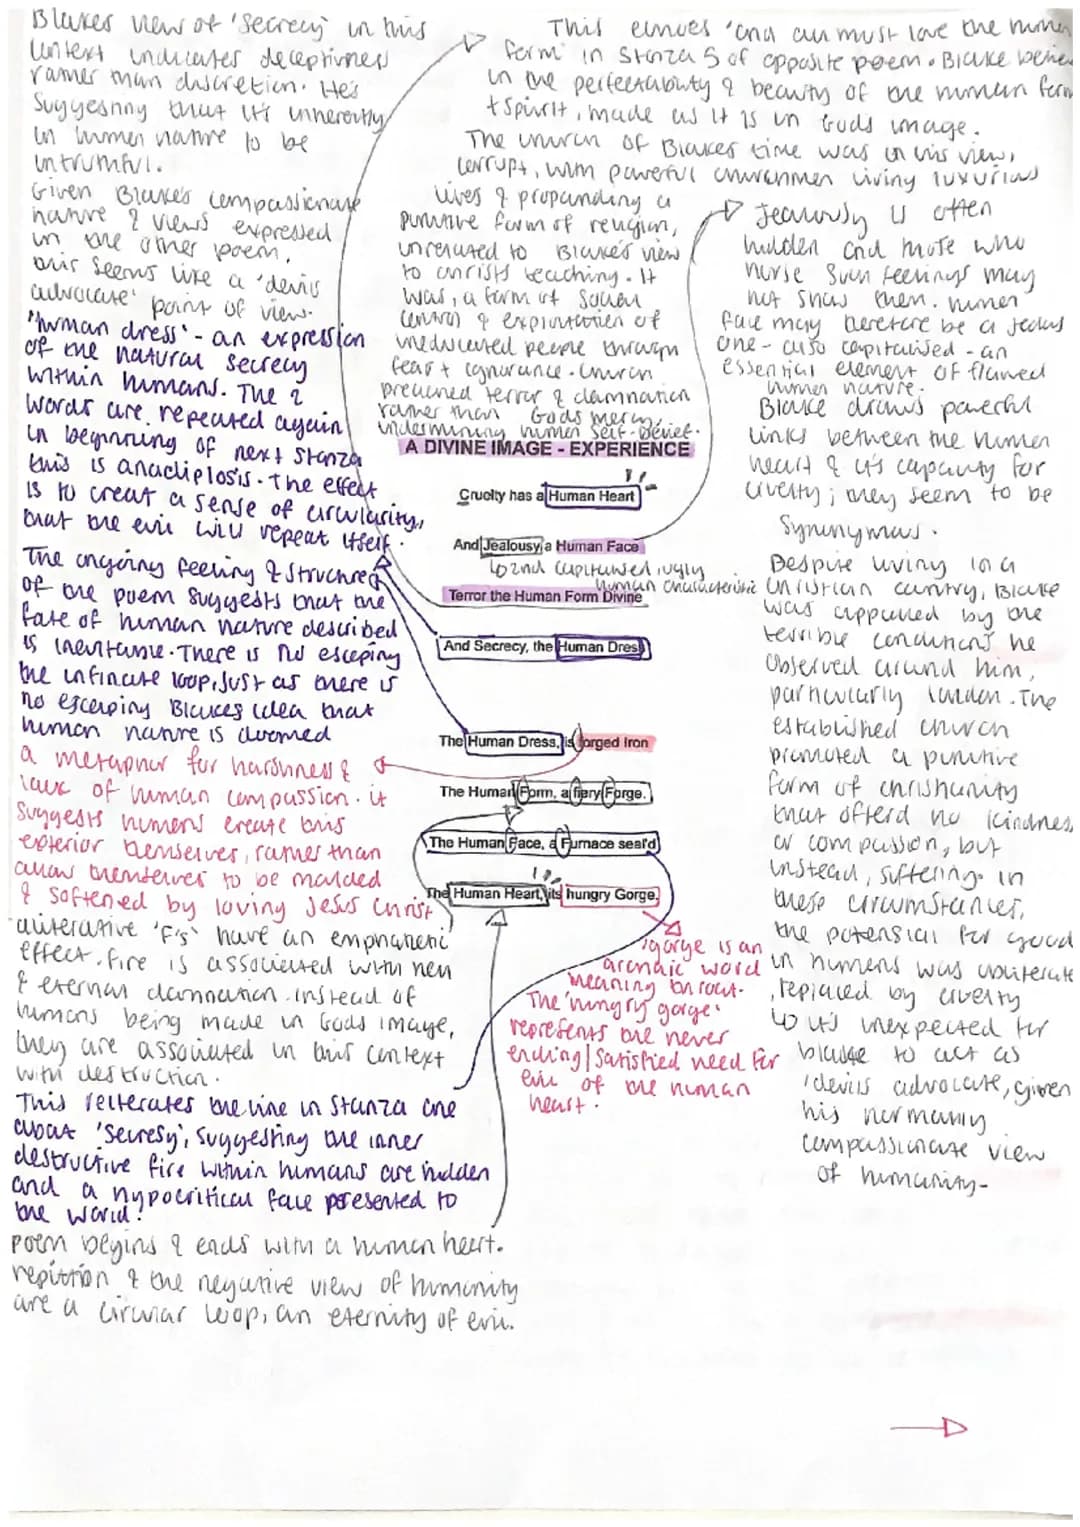 Blakes view of 'Secrecy' in this
context indicates deceptivness
rather than discretion. He's
suggesting that it's inherently
in human nature to be
untruthful.
Given Blake's compassionate
nature & views expressed
in the other poem,
this seems like a 'devils
advocate' point of view.
'human dress' - an expression
of the natural secrecy
within humans. The 2
words are repeated again
in beginning of next stanza
this is anadiplosis. The effect
is to creat a sense of circularity,
that the evil will repeat itself.
The ongoing feeling & structured
of the poem suggests that the
fate of human nature described
is inevitable. There is no escaping
the infinate loop, just as there is
no escaping Blakes idea that
human nature is doomed
a metaphor for harshness &
lack of human compassion. it
suggests humans create this
exterior themselves, rather than
allow themselves to be moulded
& softened by loving Jesus Christ
alliterative 'F's' have an emphatic
effect. fire is associated with hell
& eternal damnation. instead of
humans being made in Gods image,
they are associated in this context
with destruction.
This reiterates the line in Stanza one
about 'secresy', suggesting the inner
destructive fire within humans are hidden
and a hypocritical face presented to
the world.
poem begins & ends with a human heart.
repittion & the negative view of humanity
are a circular loop, an eternity of evil.
This echoes 'and all must love the human
form' in Stanza 5 of opposite poem. Blake
in the perfectability & beauty of the human form
+ spirit, made as it is in Gods image.
The church of Blakes time was in his view,
corrupt, with powerful churchmen living luxurious
lives & propounding a
punitive form of religion,
unrelated to Blake's view
to christs teaching. It
was, a form of social
control & exploitation of
uneducated people through
fear + ignorance. Church
preached terror & damnation
rather than Gods mercy,
undermining human self-belief.
A DIVINE IMAGE - EXPERIENCE
Cruelty has a Human Heart
And Jealousy a Human Face
2nd capitalised ugly
human characteristic
Terror the Human Form Divine
And Secrecy, the Human Dress
The Human Dress, is forged Iron
The Human Form, a fiery Forge.
The Human Face, a Furnace seal'd
The Human Heart, its hungry Gorge.
'gorge is an
archaic word
meaning throat.
The 'hungry gorge'
represents the never
ending/satisfied need for
evil of the human
heart.
Jealousy is often
hidden and those who
nurse such feelings may
not show them. Human
face may therefore be a jealous
one - also capitalised - an
essential element of flawed
human nature.
Blake draws powerful
links between the human
heart & it's capacity for
cruelty; they seem to be
synonymous.
Despite living in a
Christian country, Blake
was appalled by the
terrible conditions he
observed around him,
particularly London. The
established church
promoted a punitive
form of christianity
that offerd no kindness
or compassion, but
instead, suffering. in
these circumstances,
the potensial for good
in humans was obliterate
, replaced by cruelty
it's unexpected for
blake to act as
'devils advocate, given
his normally
compassionate view
of humanity-